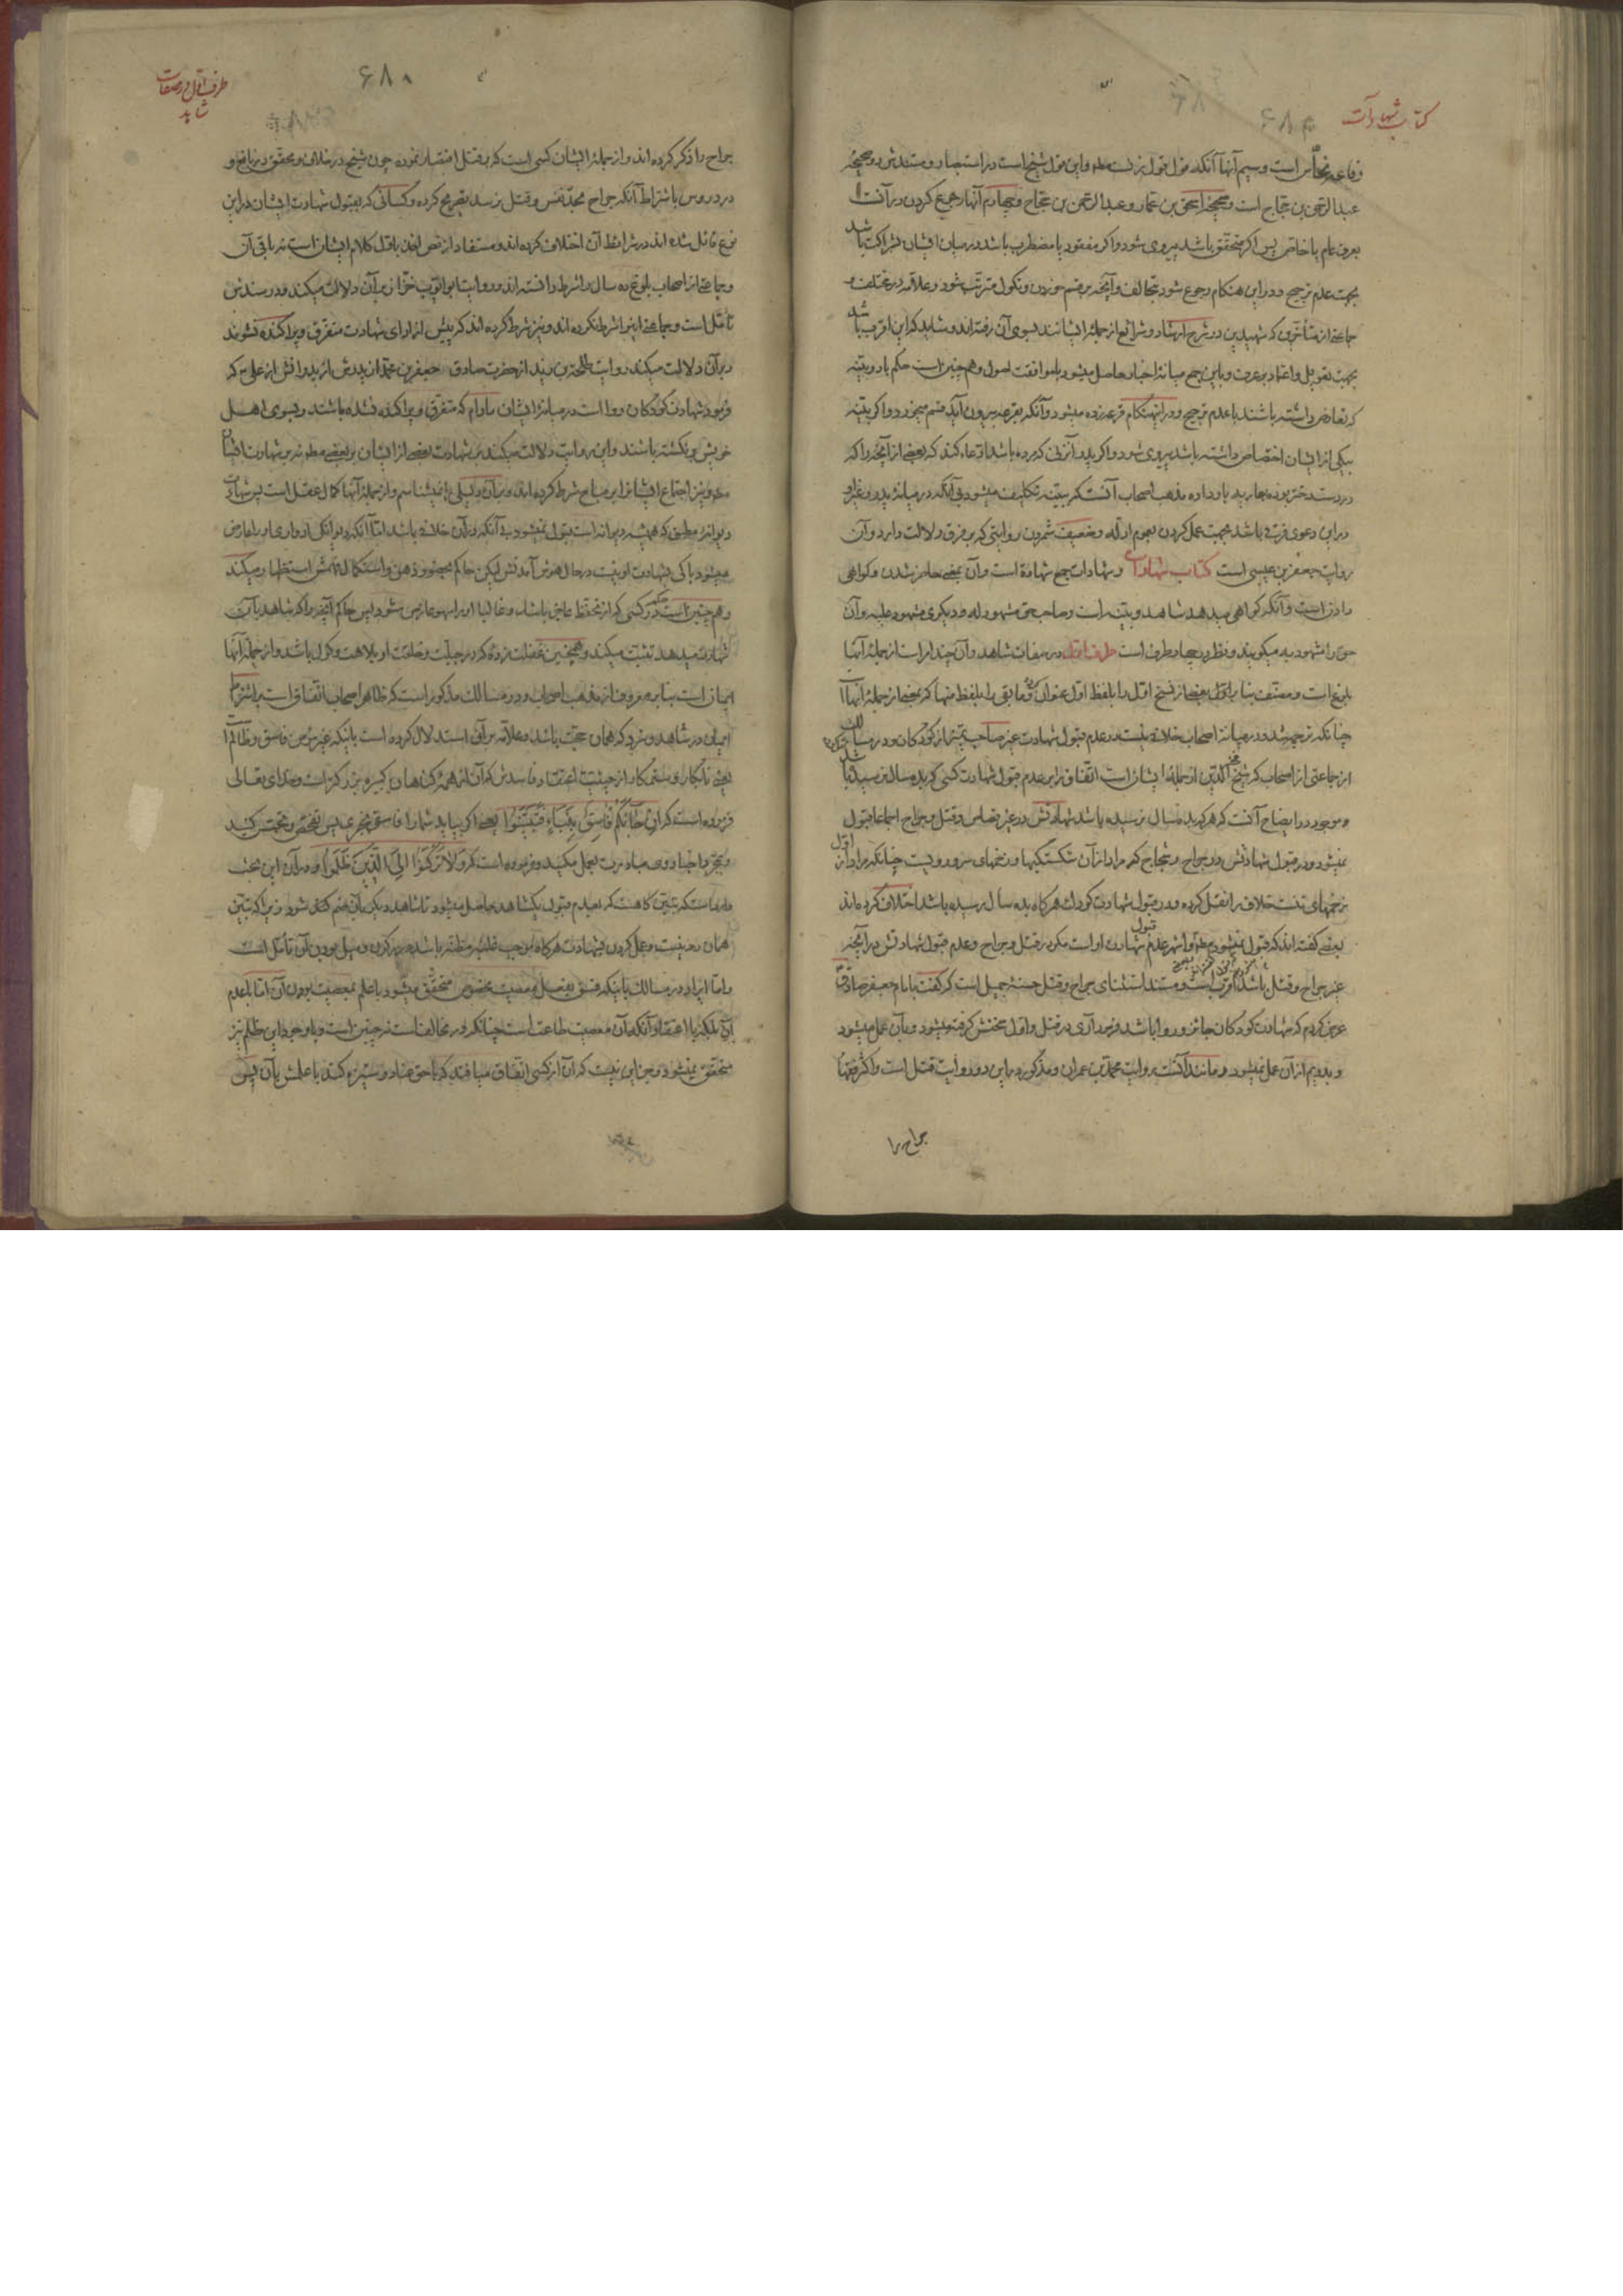 کتاب شهادات
وفاعه نحاس است وسیم آنها آنکه قول قول زنست مطلقا واین قول شیخ است در استبصار ومستندش دو صحیحه
عبدالرحمن بن حجاج است وصحیحه اسحق بن عمار وعبدالرحمن بن حجاج وچهارم آنها رجوع کردن در آنست
بعرف عام یا خاص پس اگر متحقق باشد پیروی شود واگر مفقود یا مضطرب باشد در میان ایشان شراکت باشد
بجهت عدم ترجیح ودر این هنکام رجوع شود بتحالف وآنچه بر قسم خوردن ونکول مترتب شود وعلامه در مختلف و
جماعتی از متأخرین که شهیدین در شرح ارشاد وشرائع از جمله ایشانند بسوی آن رفته اند وشاید که این اقرب باشد
بجهت تعویل واعتماد بر عرف وباین جمع میانه اخبار حاصل میشود با موافقت اصول وهم چنین است حکم با دو بینه
که تعارض داشته باشند با عدم ترجیح ودر اینهنکام قرعه زده میشود وآنکه بقرعه بیرون آید قسم میخورد واگر بینه
بیکی از ایشان اختصاص داشته باشد پیروی شود واگر پدر آنزنی که مرده باشد ادعاء کند که بعضی از آنچه را که
در دست دختر بوده بعاریه باو داده مذهب اصحاب آنست که ببینه تکلیف میشود بی آنکه در میانه پدر وغیر او
در این دعوی فرقی باشد بجهت عمل کردن بعموم ادله وضعیف شمردن روایتی که بر فرق دلالت دارد وآن
روایت جعفر بن عیسی است کتاب شهادات وشهادات جمع شهادة است وآن بمعنی حاضر شدن وکواهی
دادن است وآنکه کواهی میدهد شاهد وبینه است وصاحب حق مشهود له ودیکری مشهود علیه وآن
حق را مشهود به میکویند ونظر در چهار طرف است طرف اول در صفات شاهد وآن چند امر است از جمله آنها
بلوغ است ومصنف بنا بر اول بعضی از نسخ اول را بلفظ اول عنوان کرده وما بقی را بلفظ منها که بمعنی از جمله آنها
چنانکه ترجمه شد ودر میانه اصحاب خلاف نیست در عدم قبول شهادت غیر صاحب تمیز از کودکان ودر مسالک
از جماعتی از اصحاب که شیخ فخر الدین از جمله ایشان است اتفاق را بر عدم قبول شهادت کسی که بده سال نرسیده باشد
وموجود در ایضاح آنست که هر که بده سال نرسیده باشد شهادتش در غیر قصاص وقتل وجراح اجماعا قبول
نمیشود ودر قبول شهادتش در جراح وشجاج که مراد از آن شکستگیها وزخمهای سر ورویست چنانکه مراد از اول
زخمهای تنست خلاف را نقل کرده ودر قبول شهادت کودك هر کاه بده سال رسیده باشد اختلاف کرده اند
بعضی کفته اند که قبول نمیشود مطلقا واشهر عدم قبول شهادت او است مکر در قتل وجراح وعدم قبول شهادتش در آنچه
غیر جراح وقتل باشد اقرب است ومستند استثنای جراح وقتل حسنه جمیل است که کفت بامام جعفر صادق
عرض کردم که شهادت کودکان جائز وروا باشد فرمود آری در قتل واول سخنش کرفته میشود وبآن عمل میشود
وبدویم از آن عمل نمیشود ومانند آنست روایت محمد بن حمران ومذکور در این دو روایت قتل است واکثر فقها
جراح را
۶۸۰
طرف اول در صفات
شاهد
جراح را ذکر کرده اند واز جمله ایشان کسی است که بقتل اقتصار نموده چون شیخ در خلاف ومحقق در نافع و
در دروس باشتراط آنکه جراح بحد نفس وقتل نرسد تصریح کرده وکسانی که بقبول شهادت ایشان در این
نوع قائل شده اند در شرائط آن اختلاف کرده اند ومستفاد از نص اخذ باول کلام ایشان است نه باقی آن
وجماعتی از اصحاب بلوغ ده سال را شرط دانسته اند وروایت ابو ایوب خزاز بر آن دلالت میکند ودر سندش
تأمل است وجماعتی اینرا شرط نکرده اند ونیز شرط کرده اند که پیش از ادای شهادت متفرق وپراکنده نشوند
وبر آن دلالت میکند روایت طلحة بن زید از حضرت صادق جعفر بن محمد از پدرش از پدرانش از علی ع که
فرمود شهادت کودکان روا است در میانه ایشان مادام که متفرق وپراکنده نشده باشند وبسوی اهل
خویش برنکشته باشند واین روایت دلالت میکند بر شهادت بعضی از ایشان بر بعضی مطلقا نه بر شهادت ایشان
ونیز اجتماع ایشانرا بر مباح شرط کرده اند وبر آن دلیلی را نمیشناسم واز جمله آنها کمال عقل است پس شهادت
دیوانه مطلق که همیشه دیوانه است قبول نمیشود بی آنکه در آن خلاف باشد اما آنکه دیوانکی ادواری او را عارض
میشود باکی بشهادت او نیست در حال هوش آمدنش لیکن حاکم بحضور ذهن واستکمال فهمش استظهار میکند
وهم چنین است حکم در کسی که از تحفظ عاجز باشد وغالبا او را سهو عارض شود پس حاکم آنچه را که شاهد بآن
شهادت میدهد تثبت میکند وهمچنین غفلت زده که در جبلت وخلقت او بلاهت وکول باشد واز جمله آنها
ایمان است بنا بر معروف از مذهب اصحاب ودر مسالك مذکور است که ظاهر اصحاب اتفاق است بر اشتراط
ایمان در شاهد ونزد که همان حجت باشد وعلامه بر آن استدلال کرده است باینکه غیر مؤمن فاسق وظالم است
یعنی نابکار وستمکار از حیثیت اعتقاد فاسدش که آن از همه کناهان کبیره بزرکتر است وخدای تعالی
فرموده است که ان جاءکم فاسق بنباء فتبینوا یعنی اگر بیاید شما را فاسقی بخبری پس تفحص وتجسس کنید
وبمجرد اخبار وی مبادرت بعمل مکنید وفرموده است که ولا ترکنوا الی الذین ظلموا ودر آن این بحث
همان رد نیست وعمل کردن بشهادت هر کاه موجب غلبه مظنه باشد
واما ایراد در مسالك باینکه فسق بفعل معصیت مخصوص متحقق میشود با علم بمعصیت بودن آن اما با عدم
آن بلکه با اعتقاد آنکه آن معصیت طاعت است چنانکه در مخالف است نه چنین است وبا وجود این ظلم نیز
متحقق نمیشود وجز این نیست که آن از کسی اتفاق میافتد که با حق عناد وستیزه کند با علمش بآن پس